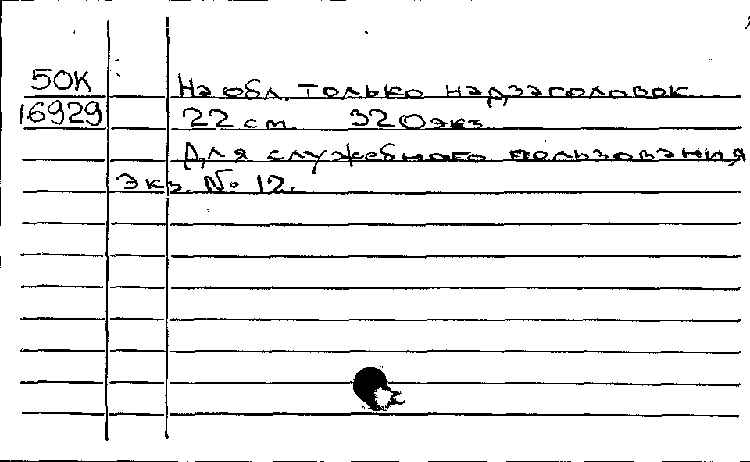 50К На обл. только надзаголовок
16929 22 cm. 320экз.
Для служебного пользования
Экз. № 12.